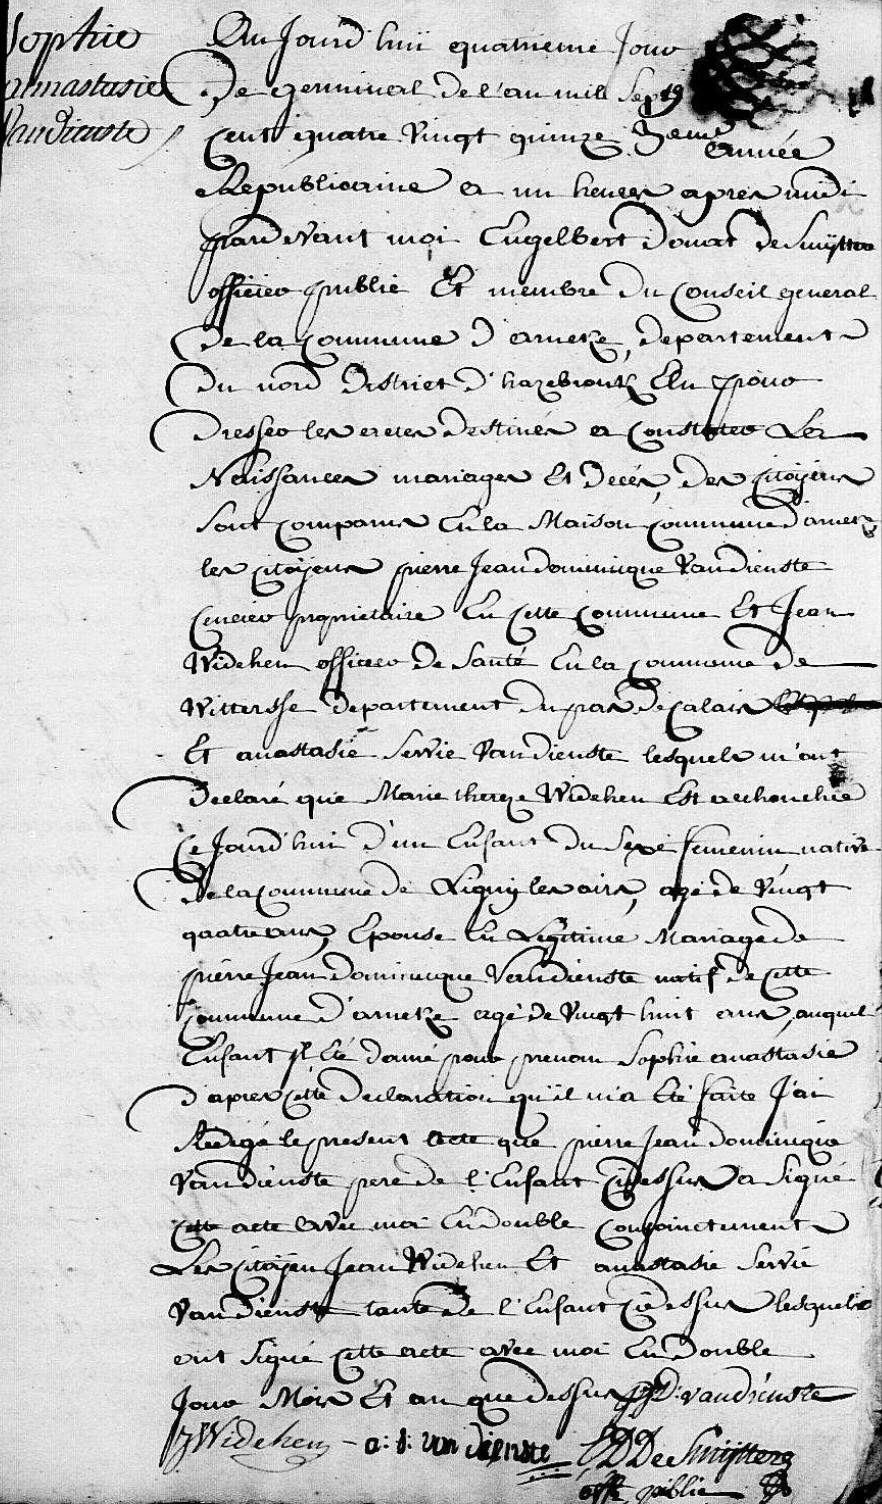 Sophie
annastasie
Vandienste
Au Jourd'huï quatrieme Jour
De germinal de l'an mil Sept 19
cent quatre Vingt quinze 3eme année
Republicaine a un heure apres midi
pardevant moi Engelbert Donat De Smÿttere
officier public Et membre Du Conseil general
De la Commune D'arneke, departement
Du nord District D'hazebrouk Elu pour
Dresser les actes destinés a Constater Les
Naissances mariages Et Decés, des Citoÿens
Sont comparus En la Maison commune d'arneke
les citoÿens pierre Jean dominique Vandienste
Cencier proprietaire En Cette Commune Et Jean
Widehen officier de Santé En la commune de
Wittersse departement du pas De Calais
Et anastasie Servie Vandienste lesquels m'ont
Declaré que Marie thereze Widehen Est acchouchée
Ce Jourd'hui D'un Enfant du Sexe femenin native
De la Commune de Ligny les aire, agé de Vingt
quatre ans, Epouse En Légitime Mariage de
pierre Jean Dominicque Vandienste natif De cette
Commune D'arneke agé de Vingt huit ans, auquel
Enfant Il Eté donné pour prenom Sophie anastasie
D'apres cette Declaration qu'il m'a Eté faite J'ai
Redigé le present acte que pierre Jean dominique
Vandienste pere de l'Enfant Cidessus a Signé
Cette acte avec moi En double Conjoinctement
Les Citoÿen Jean Widehen Et anastasie Servie
Vandienste tante De l'Enfant Ciedessus lesquels
ont Signé Cette acte avec moi En Double
Jour Mois Et an que dessus PJD: vandienste
J Widehen - a: s: van dienste E D De Smÿttere
off. public